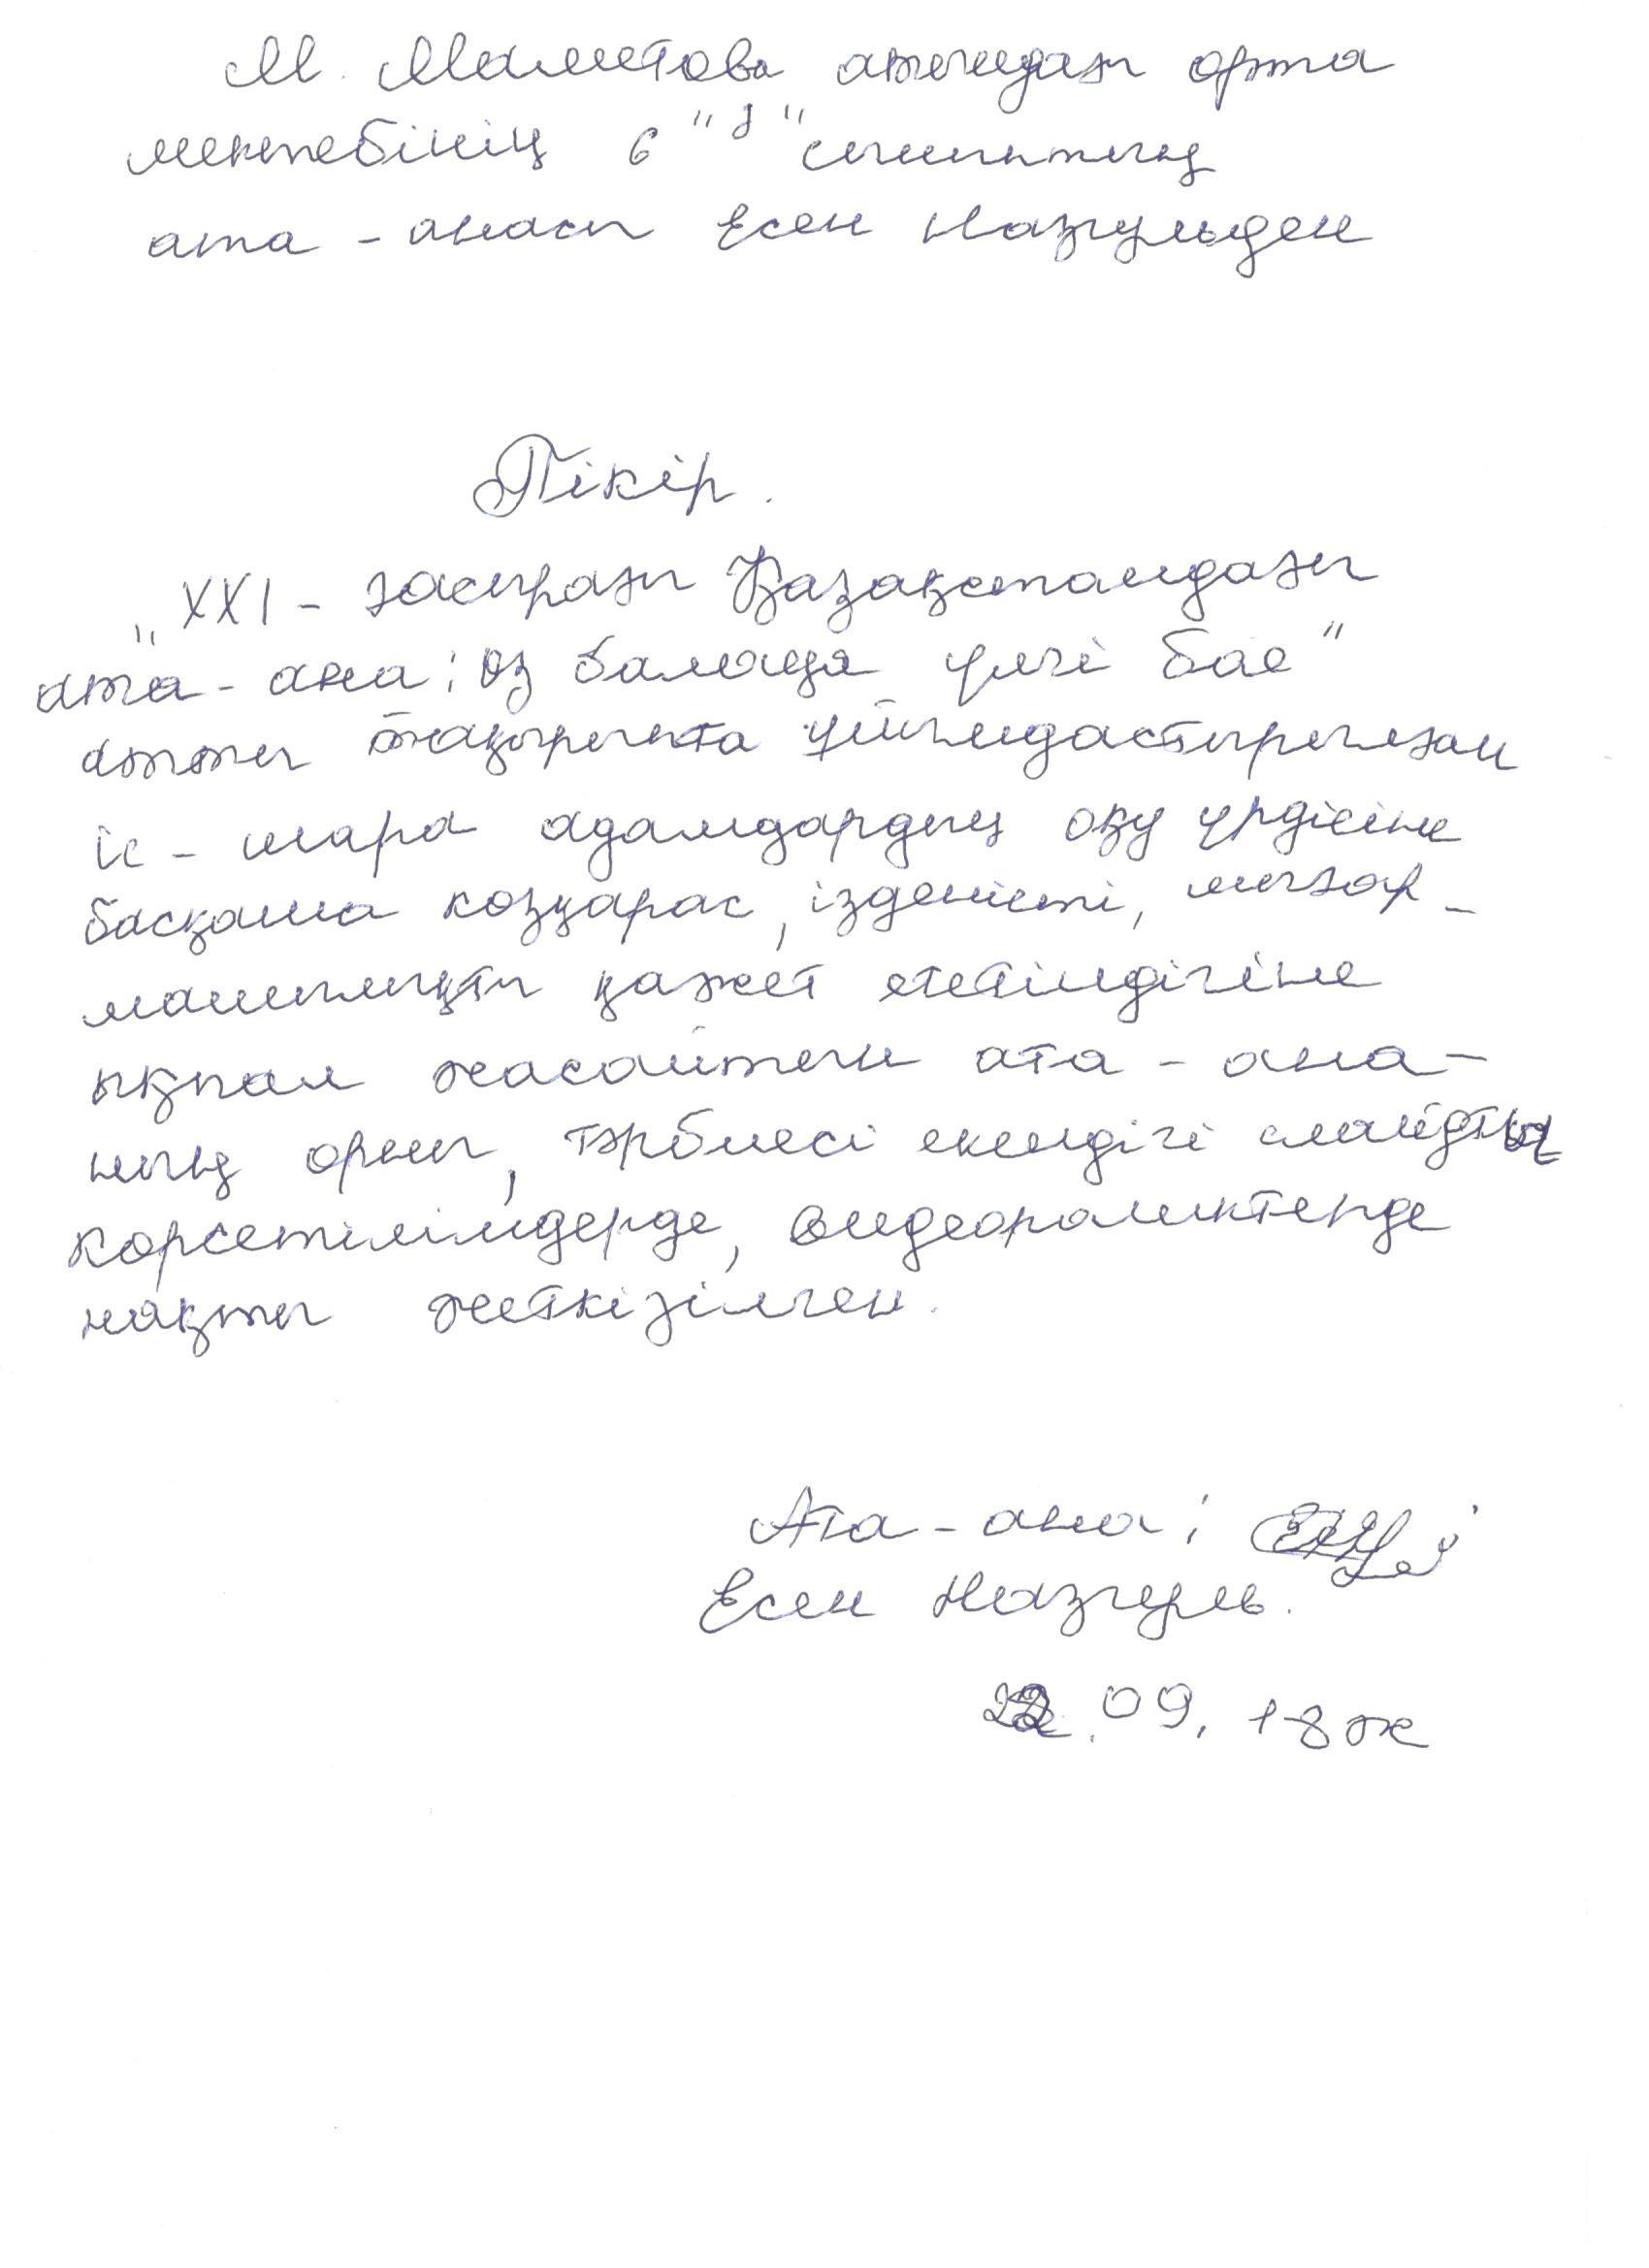 М. Маметова атындағы орта
мектебінің 6 "д" сыныптың
ата - анасы Есен Назгульден
Пікір.
"XXI - ғасырғы Қазақстандағы
ата - ана: өз балаңа үлгі бол"
атты тақырыпта ұйымдастырылған
іс - шара адамдардың оқу үрдісіне
басқаша көзқарас, ізденісті, шығар-
машылықты қажет ететіндігіне
ықпал жасайтын ата - ана-
ның орны, тәрбиесі екендігі слайдтық
көрсетілімдерде, видеороликтерде
нақты жеткізілген.
Ата - ана:
Есен Назгуль.
22. 09. 18ж